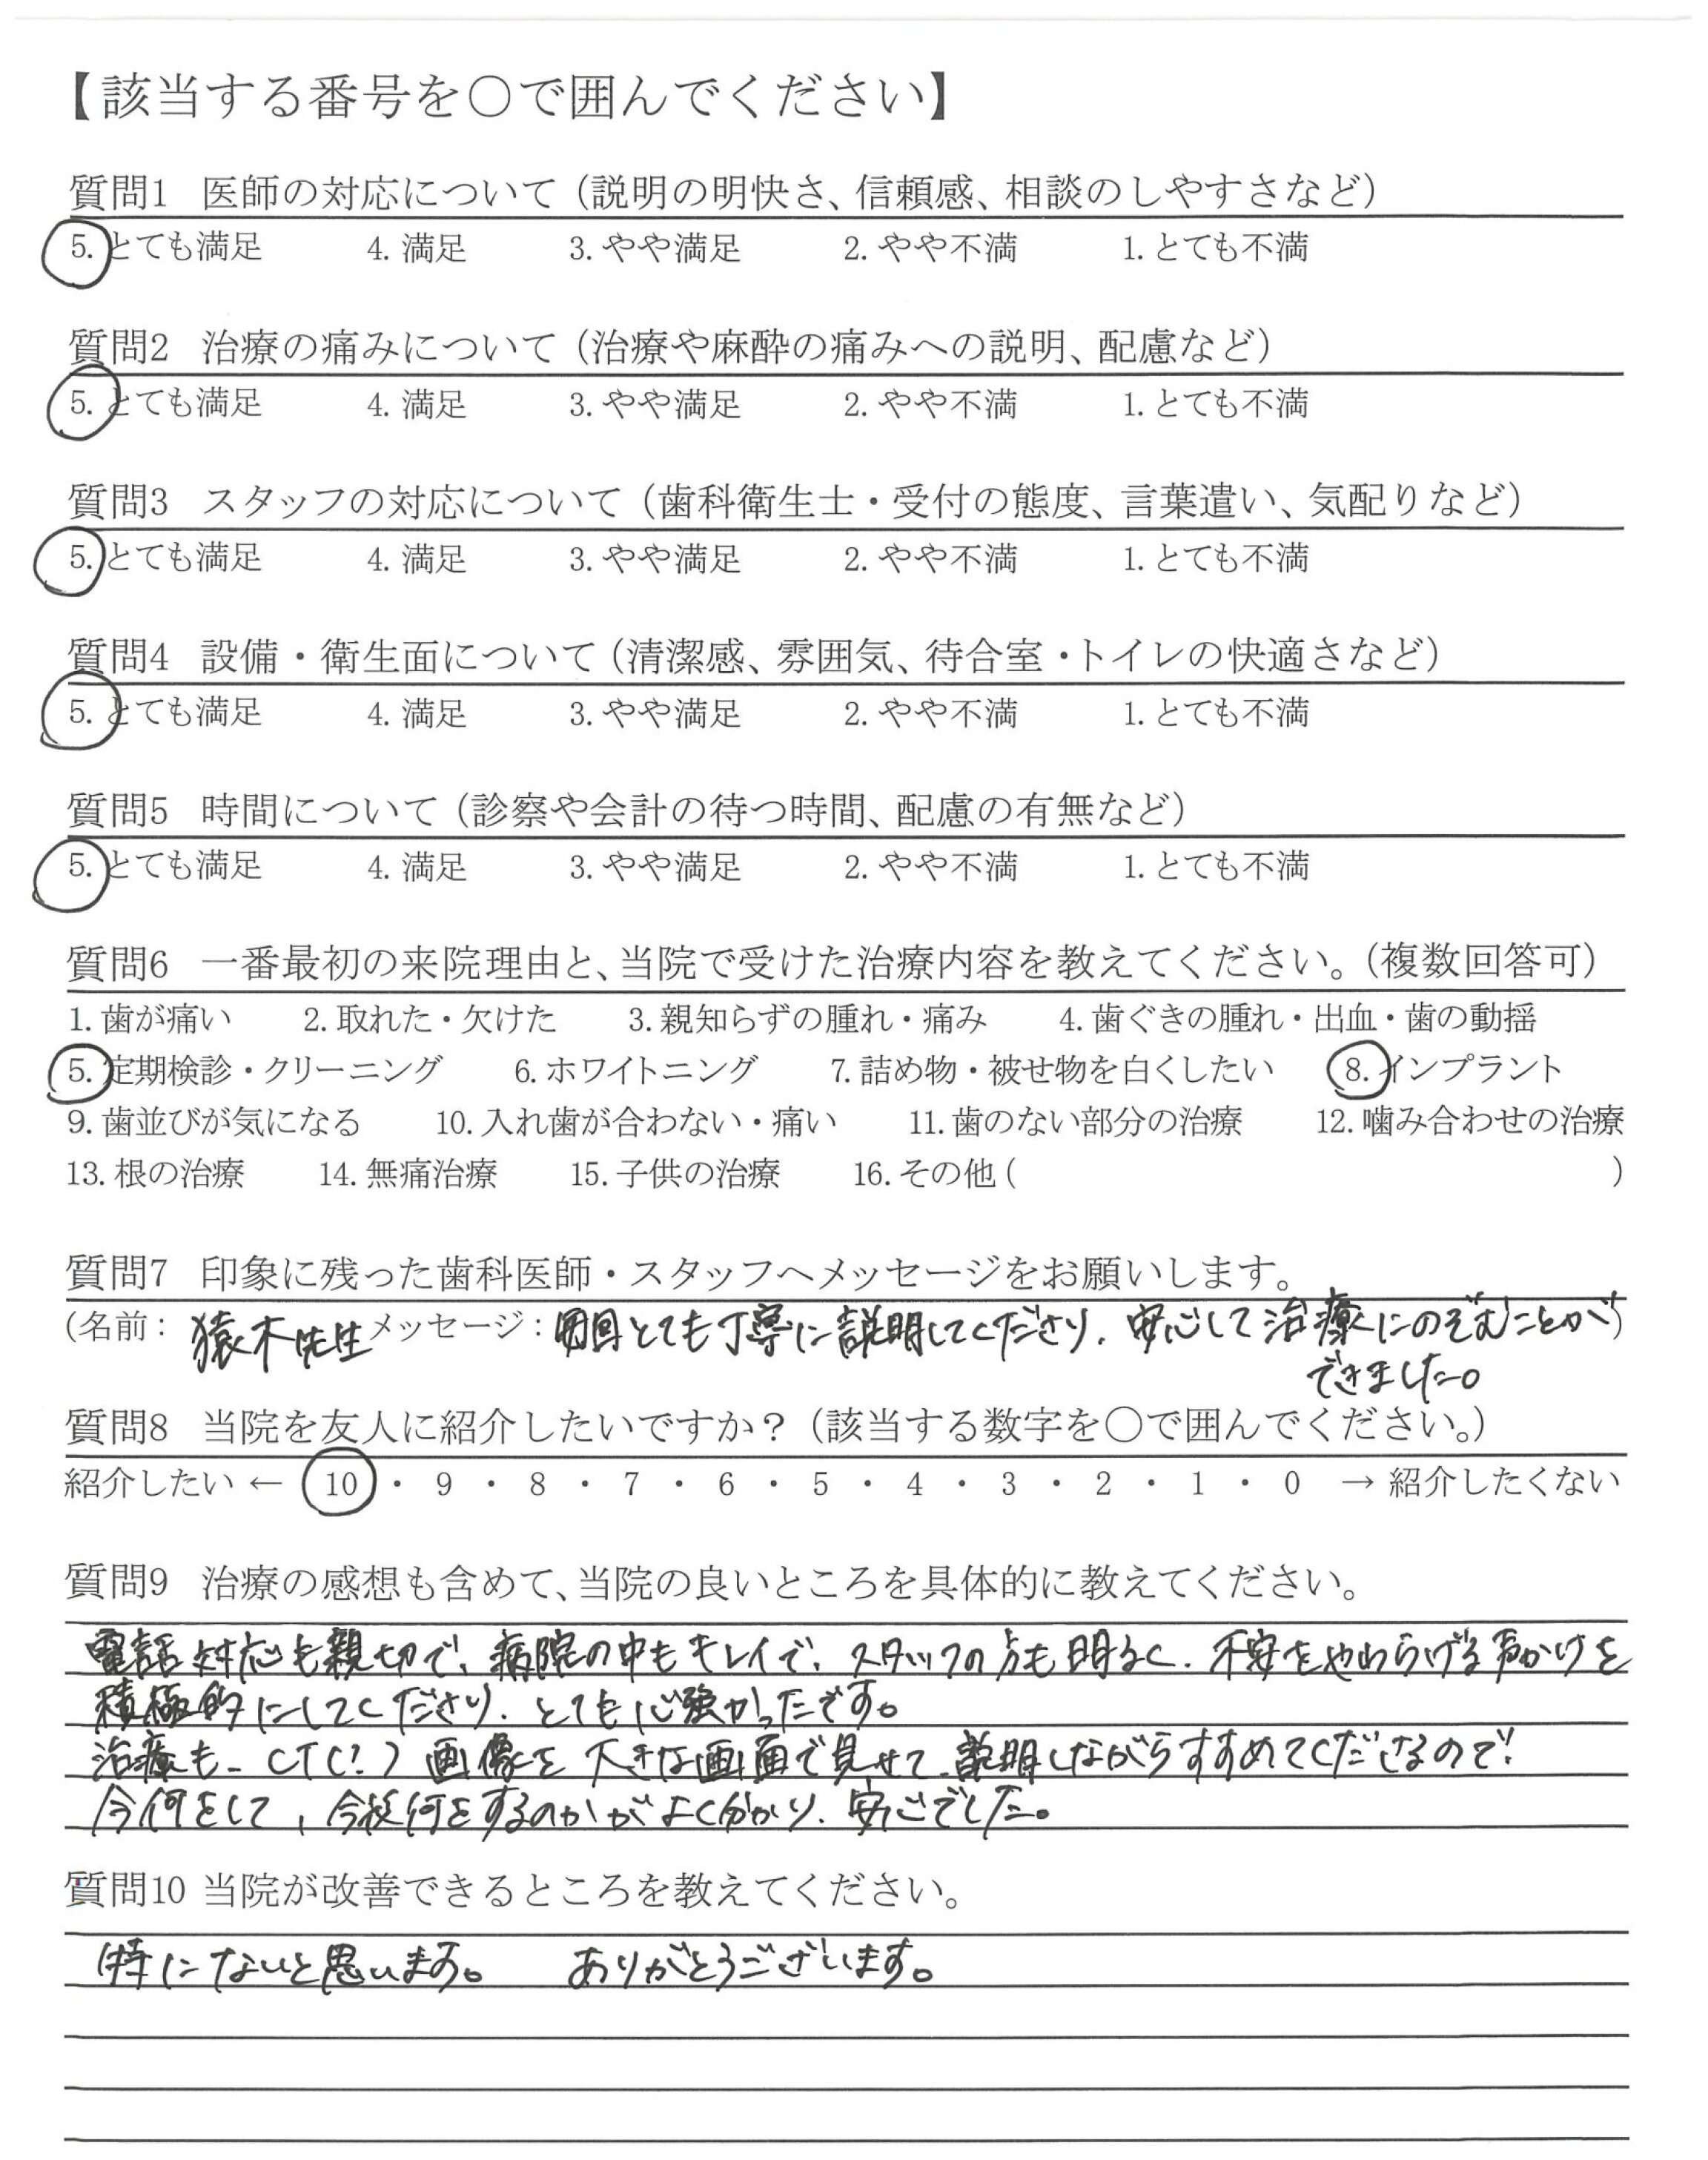 【該当する番号を〇で囲んでください】
質問1 医師の対応について（説明の明快さ、信頼感、相談のしやすさなど）
5. とても満足 4. 満足 3. やや満足 2. やや不満 1. とても不満
質問2 治療の痛みについて（治療や麻酔の痛みへの説明、配慮など）
5. とても満足 4. 満足 3. やや満足 2. やや不満 1. とても不満
質問3 スタッフの対応について（歯科衛生士・受付の態度、言葉遣い、気配りなど）
5. とても満足 4. 満足 3. やや満足 2. やや不満 1. とても不満
質問4 設備・衛生面について（清潔感、雰囲気、待合室・トイレの快適さなど）
5. とても満足 4. 満足 3. やや満足 2. やや不満 1. とても不満
質問5 時間について（診察や会計の待つ時間、配慮の有無など）
5. とても満足 4. 満足 3. やや満足 2. やや不満 1. とても不満
質問6 一番最初の来院理由と、当院で受けた治療内容を教えてください。（複数回答可）
1. 歯が痛い 2. 取れた・欠けた 3. 親知らずの腫れ・痛み 4. 歯ぐきの腫れ・出血・歯の動揺
5. 定期検診・クリーニング 6. ホワイトニング 7. 詰め物・被せ物を白くしたい 8. インプラント
9. 歯並びが気になる 10. 入れ歯が合わない・痛い 11. 歯のない部分の治療 12. 噛み合わせの治療
13. 根の治療 14. 無痛治療 15. 子供の治療 16. その他（ ）
質問7 印象に残った歯科医師・スタッフへメッセージをお願いします。
（名前： 猿木先生 メッセージ：毎回とても丁寧に説明してくださり、安心して治療にのぞむことが）
できました。
質問8 当院を友人に紹介したいですか？（該当する数字を〇で囲んでください。）
紹介したい ← 10 ・ 9 ・ 8 ・ 7 ・ 6 ・ 5 ・ 4 ・ 3 ・ 2 ・ 1 ・ 0 → 紹介したくない
質問9 治療の感想も含めて、当院の良いところを具体的に教えてください。
電話対応も親切で、病院の中もキレイで、スタッフの方も明るく、不安をやわらげる声かけを
積極的にしてくださり、とても心強かったです。
治療も、CT(？)画像を大きな画面で見せて、説明しながらすすめてくださるので、
今何をして、今後何をするのかがよく分かり、安心でした。
質問10 当院が改善できるところを教えてください。
特にないと思います。 ありがとうございます。